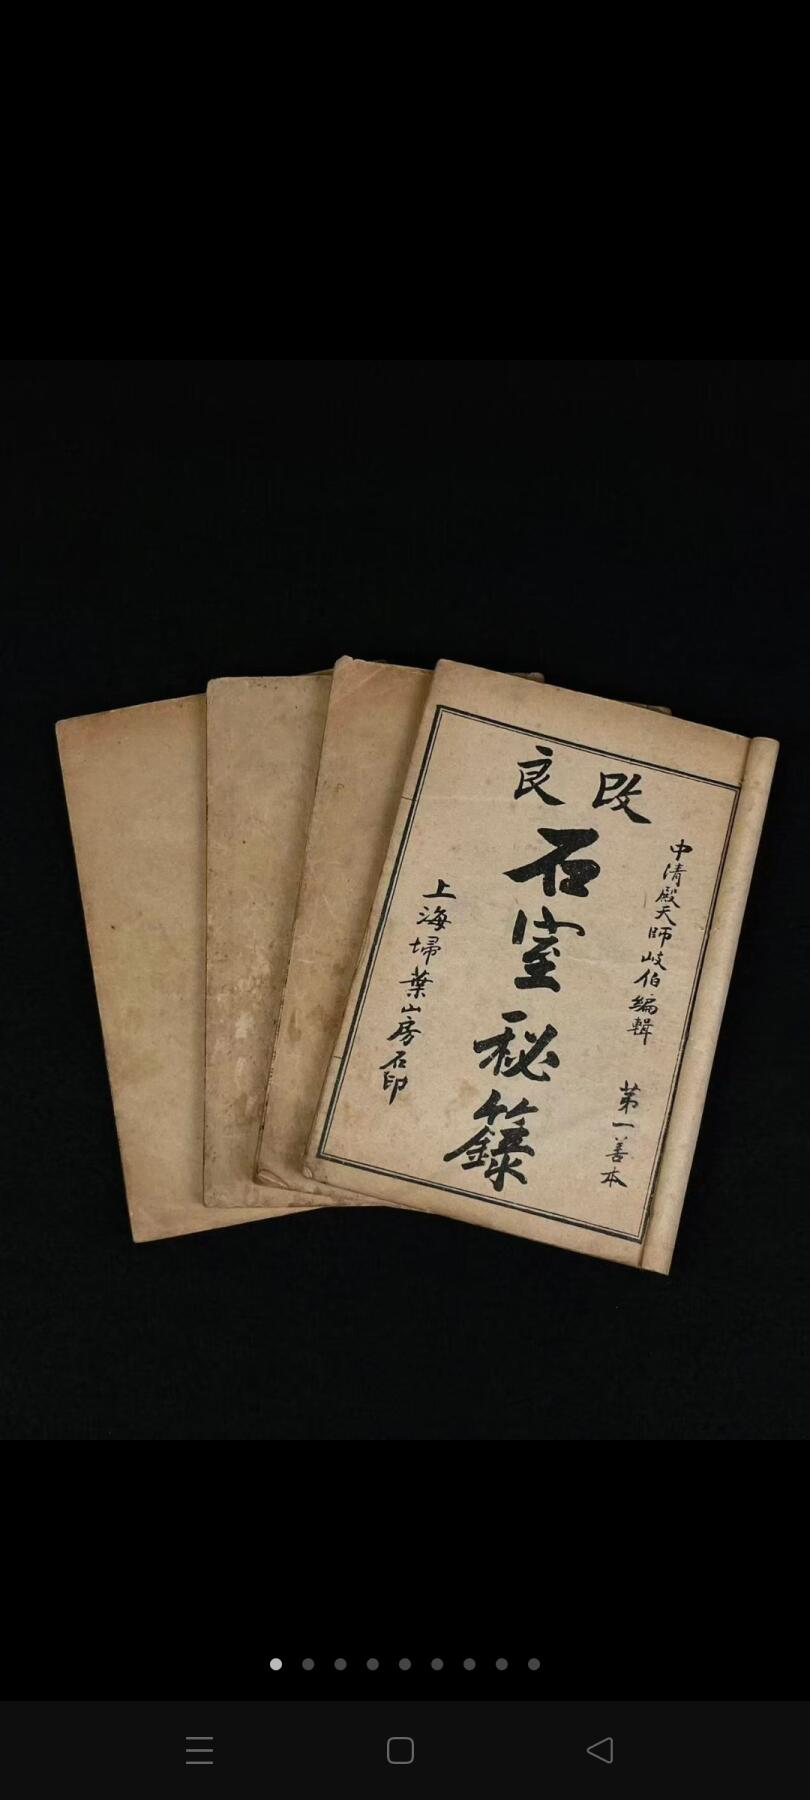 改良
中清殿天師岐伯編輯　第一善本
石室秘籙
上海埽葉山房石印